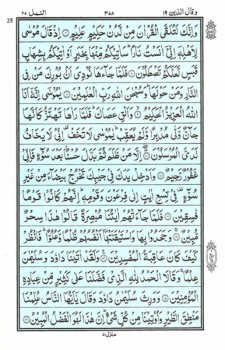 وقال الذين ١٩ ٣٨٨ النمل ٢٧
25
وَاِنَّكَ لَتُلَقَّى الْقُرْاٰنَ مِنْ لَّدُنْ حَكِيْمٍ عَلِيْمٍ ۝ اِذْ قَالَ مُوْسٰى
لِاَهْلِهٖٓ اِنِّيْٓ اٰنَسْتُ نَارًا ؕ سَاٰتِيْكُمْ مِّنْهَا بِخَبَرٍ اَوْ اٰتِيْكُمْ بِشِهَابٍ
قَبَسٍ لَّعَلَّكُمْ تَصْطَلُوْنَ ۝ فَلَمَّا جَآءَهَا نُوْدِيَ اَنْۢ بُوْرِكَ مَنْ فِي
النَّارِ وَمَنْ حَوْلَهَا ؕ وَسُبْحٰنَ اللّٰهِ رَبِّ الْعٰلَمِيْنَ ۝ يٰمُوْسٰٓى اِنَّهٗٓ
اَنَا اللّٰهُ الْعَزِيْزُ الْحَكِيْمُ ۝ وَاَلْقِ عَصَاكَ ؕ فَلَمَّا رَاٰهَا تَهْتَزُّ كَاَنَّهَا
جَآنٌّ وَّلّٰى مُدْبِرًا وَّلَمْ يُعَقِّبْ ؕ يٰمُوْسٰى لَا تَخَفْ اِنِّيْ لَا يَخَافُ
لَدَيَّ الْمُرْسَلُوْنَ ۝ اِلَّا مَنْ ظَلَمَ ثُمَّ بَدَّلَ حُسْنًۢا بَعْدَ سُوْٓءٍ فَاِنِّيْ
غَفُوْرٌ رَّحِيْمٌ ۝ وَاَدْخِلْ يَدَكَ فِيْ جَيْبِكَ تَخْرُجْ بَيْضَآءَ مِنْ غَيْرِ
سُوْٓءٍ فِيْ تِسْعِ اٰيٰتٍ اِلٰى فِرْعَوْنَ وَقَوْمِهٖ ؕ اِنَّهُمْ كَانُوْا قَوْمًا
فٰسِقِيْنَ ۝ فَلَمَّا جَآءَتْهُمْ اٰيٰتُنَا مُبْصِرَةً قَالُوْا هٰذَا سِحْرٌ
مُّبِيْنٌ ۝ وَجَحَدُوْا بِهَا وَاسْتَيْقَنَتْهَآ اَنْفُسُهُمْ ظُلْمًا وَّعُلُوًّا ؕ فَانْظُرْ
كَيْفَ كَانَ عَاقِبَةُ الْمُفْسِدِيْنَ ۝ وَلَقَدْ اٰتَيْنَا دَاوٗدَ وَسُلَيْمٰنَ
عِلْمًا ۚ وَقَالَا الْحَمْدُ لِلّٰهِ الَّذِيْ فَضَّلَنَا عَلٰى كَثِيْرٍ مِّنْ عِبَادِهِ
الْمُؤْمِنِيْنَ ۝ وَوَرِثَ سُلَيْمٰنُ دَاوٗدَ وَقَالَ يٰٓاَيُّهَا النَّاسُ عُلِّمْنَا
مَنْطِقَ الطَّيْرِ وَاُوْتِيْنَا مِنْ كُلِّ شَيْءٍ ؕ اِنَّ هٰذَا لَهُوَ الْفَضْلُ الْمُبِيْنُ ۝
منزل ٥